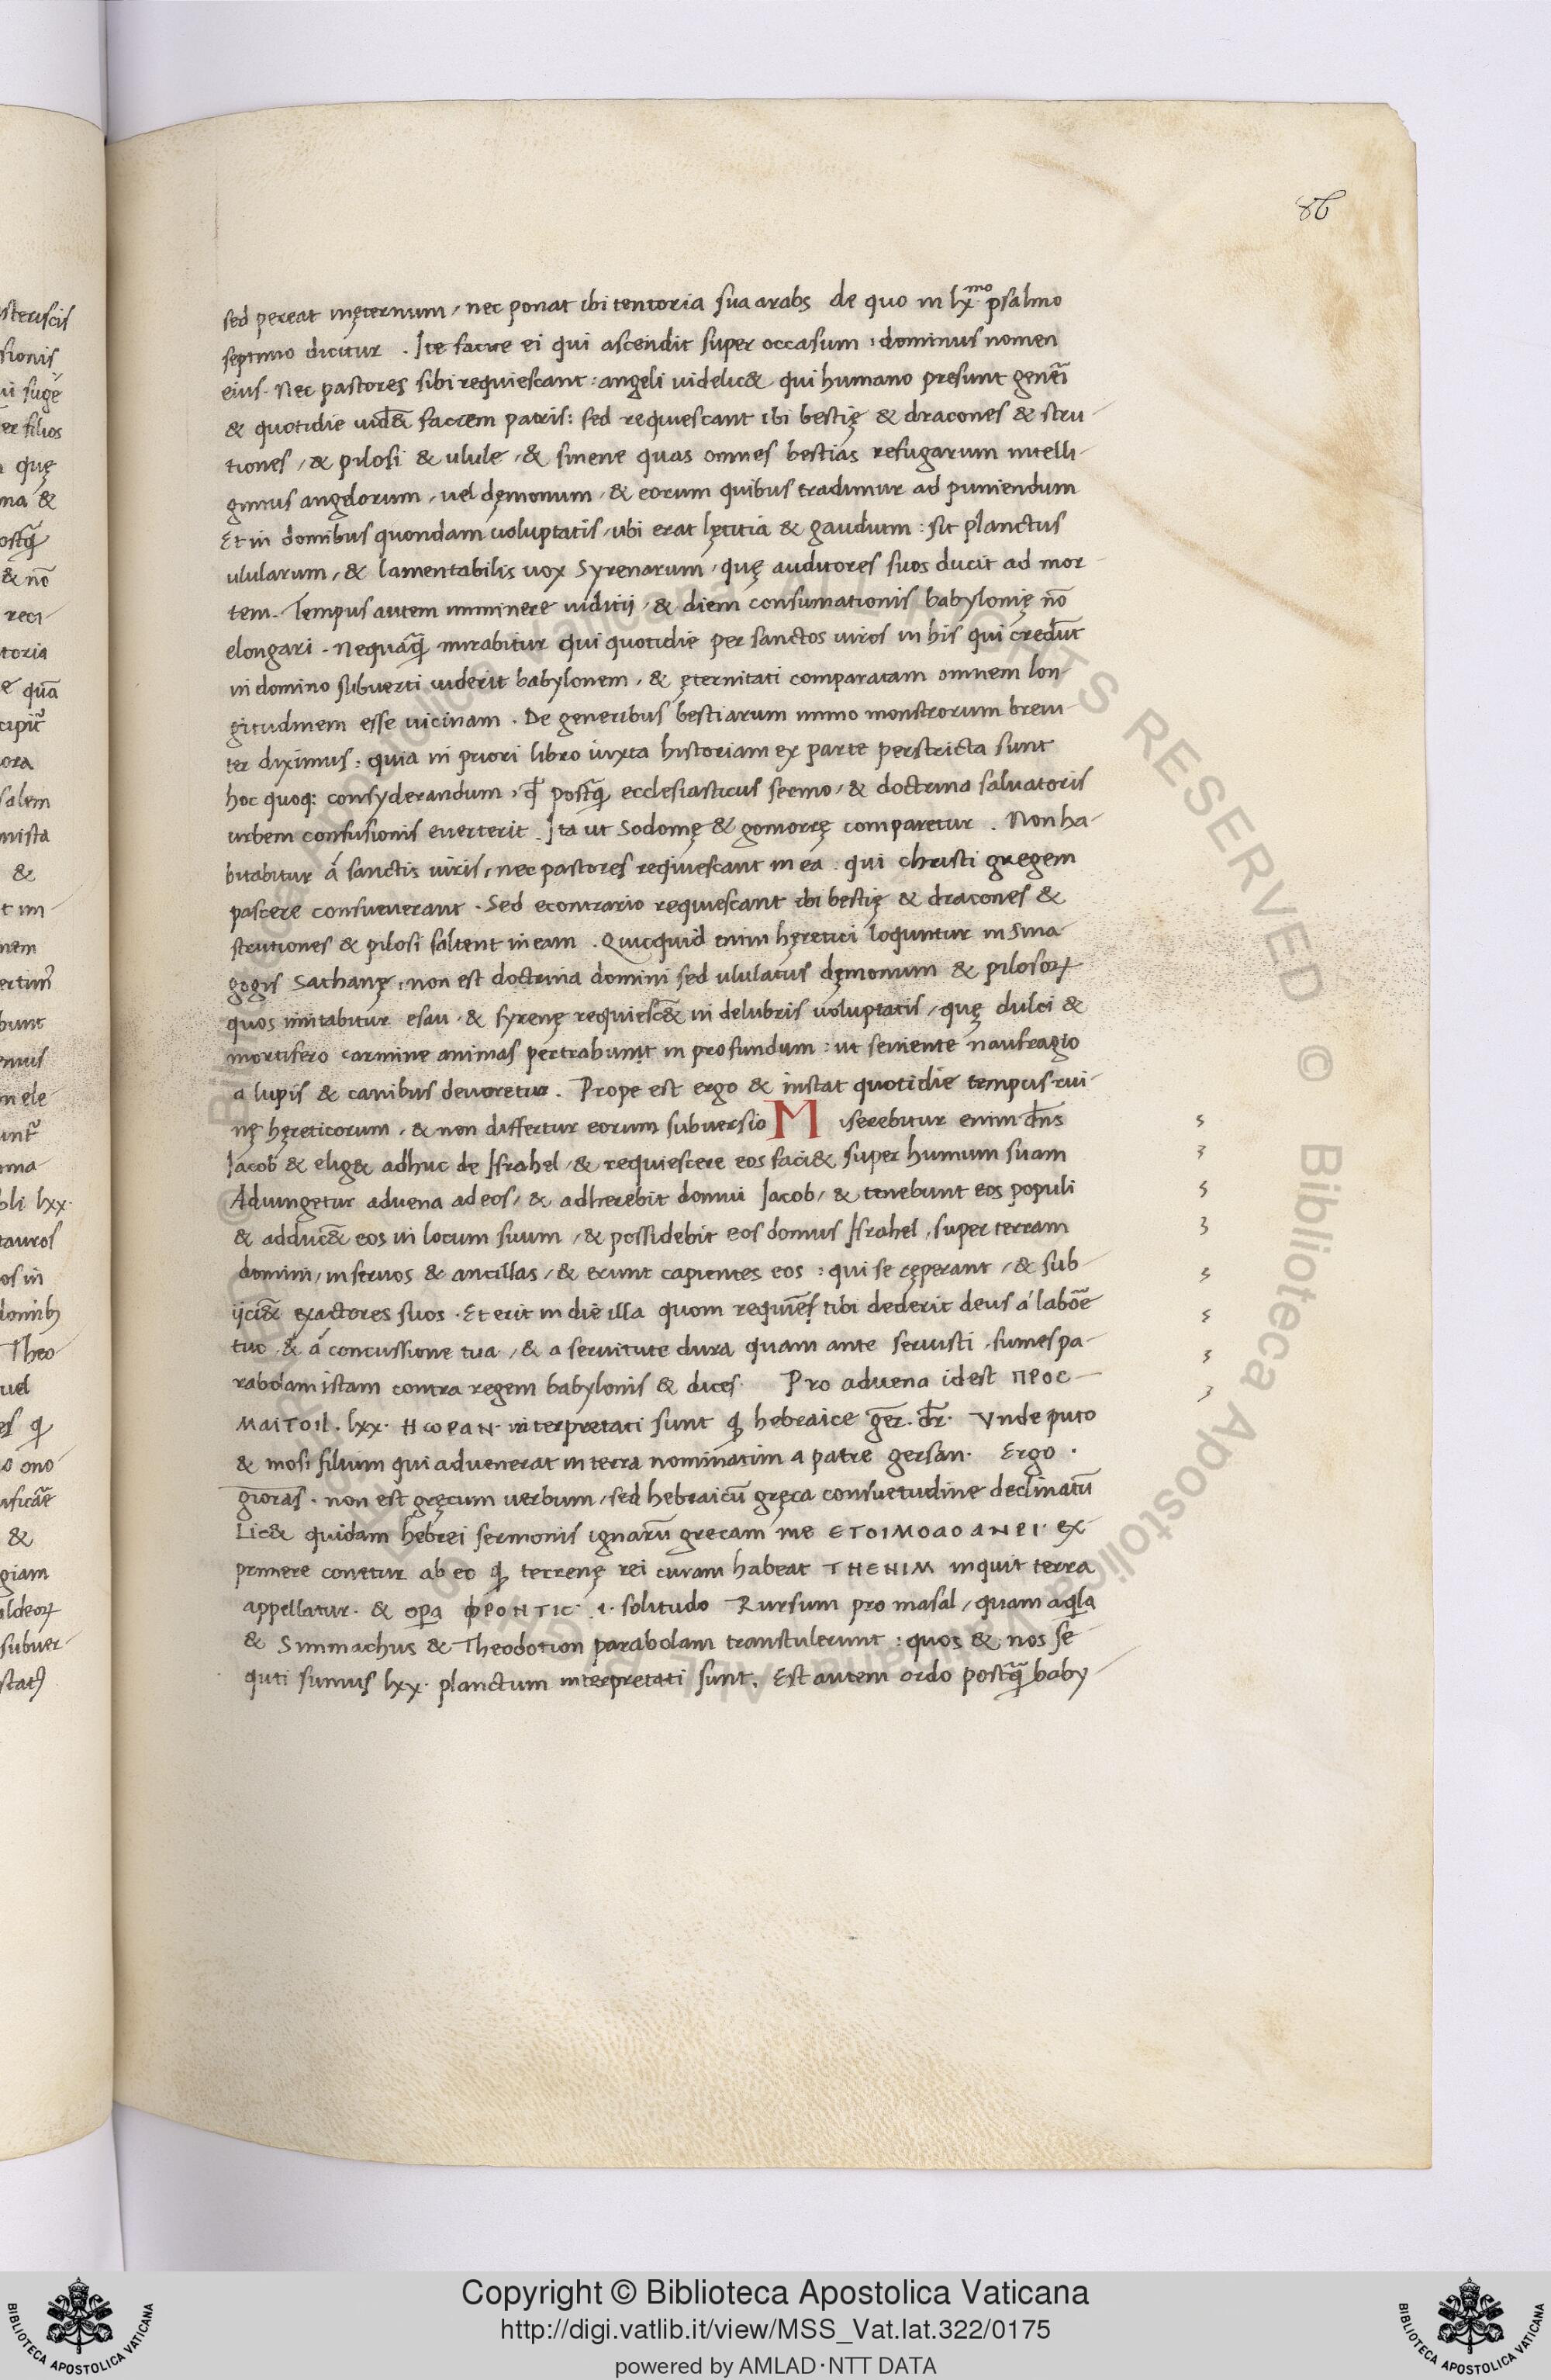 86
sed pereat inęternum, nec ponat ibi tentoria sua arabs de quo in lx.mo psalmo
septimo dicitur. Ite facite ei qui ascendit super occasum: dominus nomen
eius. Nec pastores sibi requiescant: angeli uidelic& qui humano presunt gene͞ri
& quotidie uide͞& faciem patris: sed requiescant ibi bestię & dracones & stru-
tiones, & pilosi & ulule, & sirene quas omnes bestias refugarum intelli-
gimus angelorum, uel dęmonum, & eorum quibus tradimur ad puniendum
Et in domibus quondam uoluptatis, ubi erat lętitia & gaudium: sit planctus
ulularum, & lamentabilis uox Syrenarum, quę auditores suos ducit ad mor-
tem. Tempus autem imminere uiditij, & diem consumationis babylonię no͞
elongari. Nequa͞q͞ mirabitur qui quotidie per sanctos uiros in his qui credu͞t
in domino subuerti uiderit babylonem, & ęternitati comparatam omnem lon-
gitudinem esse uicinam. De generibus bestiarum immo monstrorum breui-
ter diximus: quia in priori libro iuxta historiam ex parte perstricta sunt
hoc quoq; consyderandum, q͞ postq͞ ecclesiasticus sermo, & doctrina saluatoris
urbem confusionis euerterit. Ita ut Sodomę & gomorrę comparetur. Non ha-
bitabitur á sanctis uiris, nec pastores requiescant in ea: qui christi gregem
pascere consueuerant. Sed econtrario requiescant ibi bestię & dracones &
strutiones & pilosi saltent in eam. Quicquid enim hęretici loquntur in sina-
gogis Sathanę, non est doctrina domini sed ululatus dęmonum & pilosoꝝ
quos imitabitur esau, & syrenę requiesc͞& in delubris uoluptatis, quę dulci &
mortifero carmine animas pertrabunt in profundum: ut seuiente naufragio
a lupis & canibus deuoretur. Prope est ergo & instat quotidie tempus rui-
nę hęreticorum, & non differtur eorum subuersio Miserebitur enim dn͞s
Iacob & elig& adhuc de Israhel, & requiescere eos faci& super humum suam
Adiungetur aduena ad eos, & adherebit domui Iacob, & tenebunt eos populi
& adduc͞& eos in locum suum, & possidebit eos domus Israhel, super terram
domini, in seruos & ancillas, & erunt capientes eos: qui se cęperant, & sub-
ijci͞& exactores suos. Et erit in die illa quom requie͞s tibi dederit deus á labo͞e
tuo, & á concussione tua, & a seruitute dura quam ante seruisti, sumes pa-
rabolam istam contra regem babylonis & dices. Pro aduena idest ΠΡΟC-
ΜΑΙΤΟΙΙ. lxx. ΗΩΡΑΝ. interpretati sunt q͞ hebraice ge͞r. d͞r. Vnde puto
& mosi filium qui aduenerat in terra nominatim a patre gersan. Ergo.
gioras. non est gręcum uerbum, sed hebraicu͞ gręca consuetudine declinatu͞
Lic& quidam hebrei sermonis ignaru͞ grecam me ΕΤΟΙΜΟΛΟΑΝΡΙ. ex-
primere conetur ab eo q͞ terrenę rei curam habeat ΤΗΕΝΙΜ inquit terra
appellatur. & op͞a ΦΡΟΝΤΙC .i. solitudo Rursum pro masal, quam aq͞la
& Simmachus & Theodotion parabolam transtulerunt: quos & nos se-
quti sumus lxx. planctum interpretati sunt. Est autem ordo postq͞ baby-
Copyright © Biblioteca Apostolica Vaticana
http://digi.vatlib.it/view/MSS_Vat.lat.322/0175
powered by AMLAD·NTT DATA